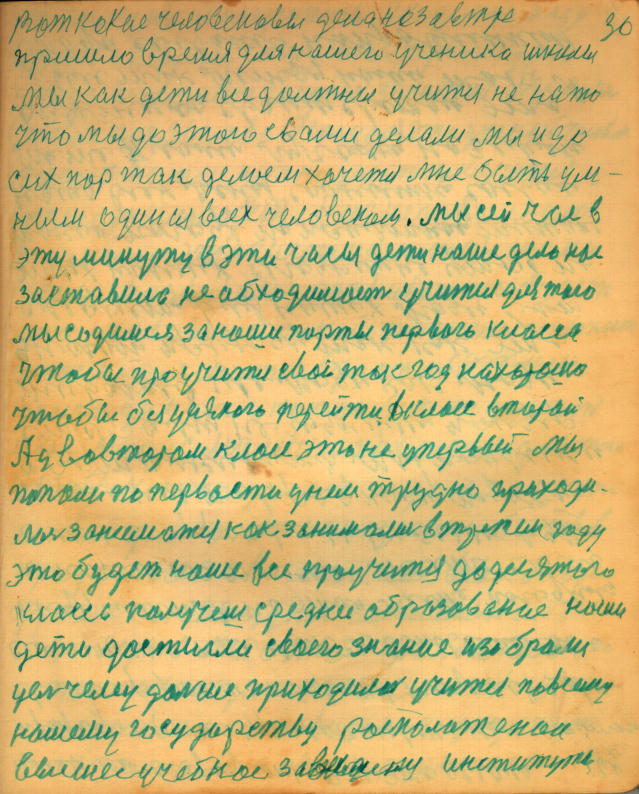 Вот какие человековы дела на завтре 30
пришло время для нашего ученика школы
мы как дети все должны учится не на то
что мы до этого свами делали мы и до
сих пор так делаем хочется мне быть ум-
ным один из всех человеком. мы сей час в
эту минуту в эти часы дети наше дело нас
заставила необходимост учится для того
мы содимся за наши парты первого класса
чтобы проучится свой так год на хорошо
чтобы без всякого перейти в класс второй
А у во втором класе это не у первый мы
попали по первости у нем трудно приходи-
лась заниматся как занимались в третем году
это будет наше все проучится до десятого
класса получем средние образование наши
дети достигли своего знание избрали
цель чему дальше приходилась учится по всему
нашему государству расположеном
высшее учебное институты